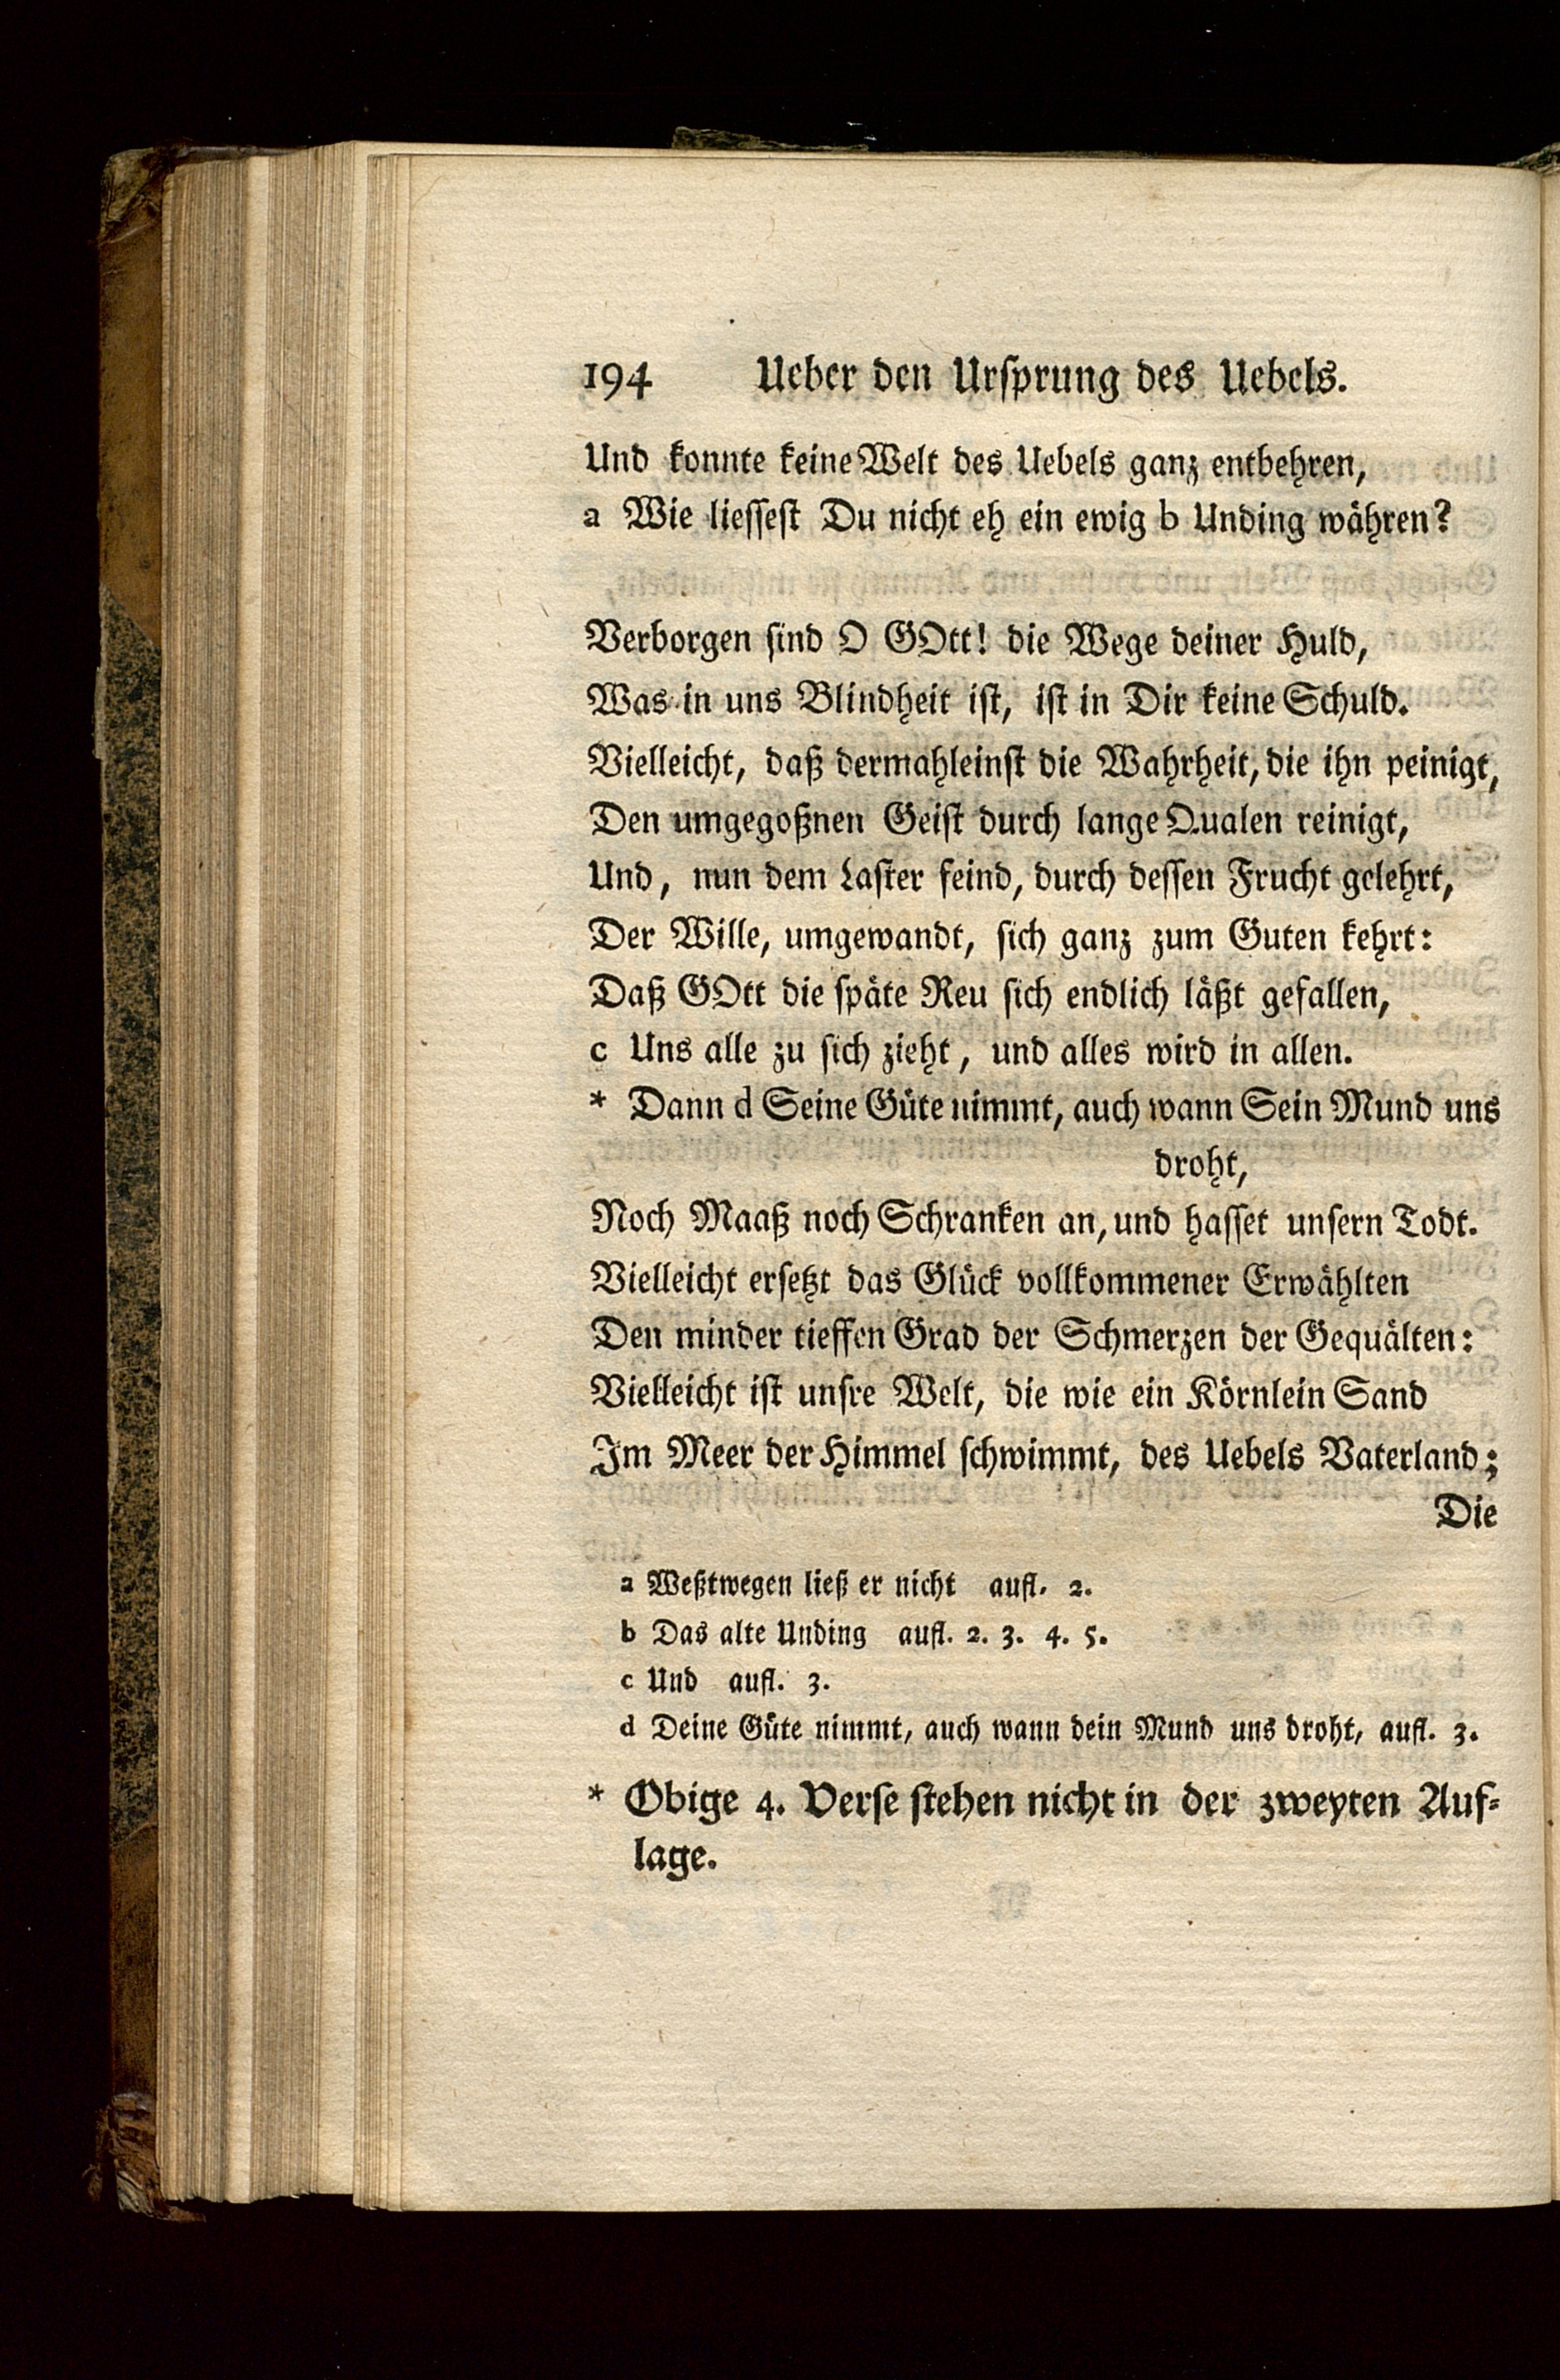 194 Ueber den Ursprung des Uebels.
Und konnte keine Welt des Uebels ganz entbehren,
a Wie liessest Du nicht eh ein ewig b Unding währen?
Verborgen sind O GOtt! die Wege deiner Huld,
Was in uns Blindheit ist, ist in Dir keine Schuld.
Vielleicht, daß dermahleinst die Wahrheit, die ihn peinigt,
Den umgegoßnen Geist durch lange Qualen reinigt,
Und, nun dem Laster feind, durch dessen Frucht gelehrt,
Der Wille, umgewandt, sich ganz zum Guten kehrt:
Daß GOtt die späte Reu sich endlich läßt gefallen,
c Uns alle zu sich zieht, und alles wird in allen.
* Dann d Seine Güte nimmt, auch wann Sein Mund uns
droht,
Noch Maaß noch Schranken an, und hasset unsern Todt.
Vielleicht ersetzt das Glück vollkommener Erwählten
Den minder tieffen Grad der Schmerzen der Gequälten:
Vielleicht ist unsre Welt, die wie ein Körnlein Sand
Im Meer der Himmel schwimmt, des Uebels Vaterland;
Die
a Weßtwegen ließ er nicht aufl. 2.
b Das alte Unding aufl. 2. 3. 4. 5.
c Und aufl. 3.
d Deine Güte nimmt, auch wann dein Mund uns droht, aufl. 3.
* Obige 4. Verse stehen nicht in der zweyten Auf-
lage.